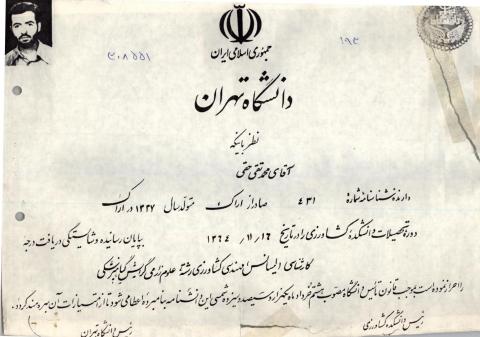 جمهوری اسلامی ایران
۱۹۳
۳۰۸۵۵۱
دانشگاه تهران
نظر باینکه
آقای محمد تقی حقی
دارنده شناسنامه شماره ۴۳۱ صادر از اراک متولد سال ۱۳۳۷ در اراک
دوره تحصیلات دانشکده کشاورزی را در تاریخ ۱۳۶۴/۱۱/۱۶ بپایان رسانیده و شایستگی دریافت درجه
کارشناسی (لیسانس) مهندسی کشاورزی رشته علوم زراعی گرایش گیاهپزشکی
را احراز نموده است بموجب قانون تأسیس دانشگاه مصوب هشتم خرداد ماه یکهزار و سیصد و سیزده شمسی این دانشنامه بنامبرده اعطا می شود تا از امتیازات آن بهره مند گردد.
رئیس دانشکده کشاورزی
رئیس دانشگاه تهران